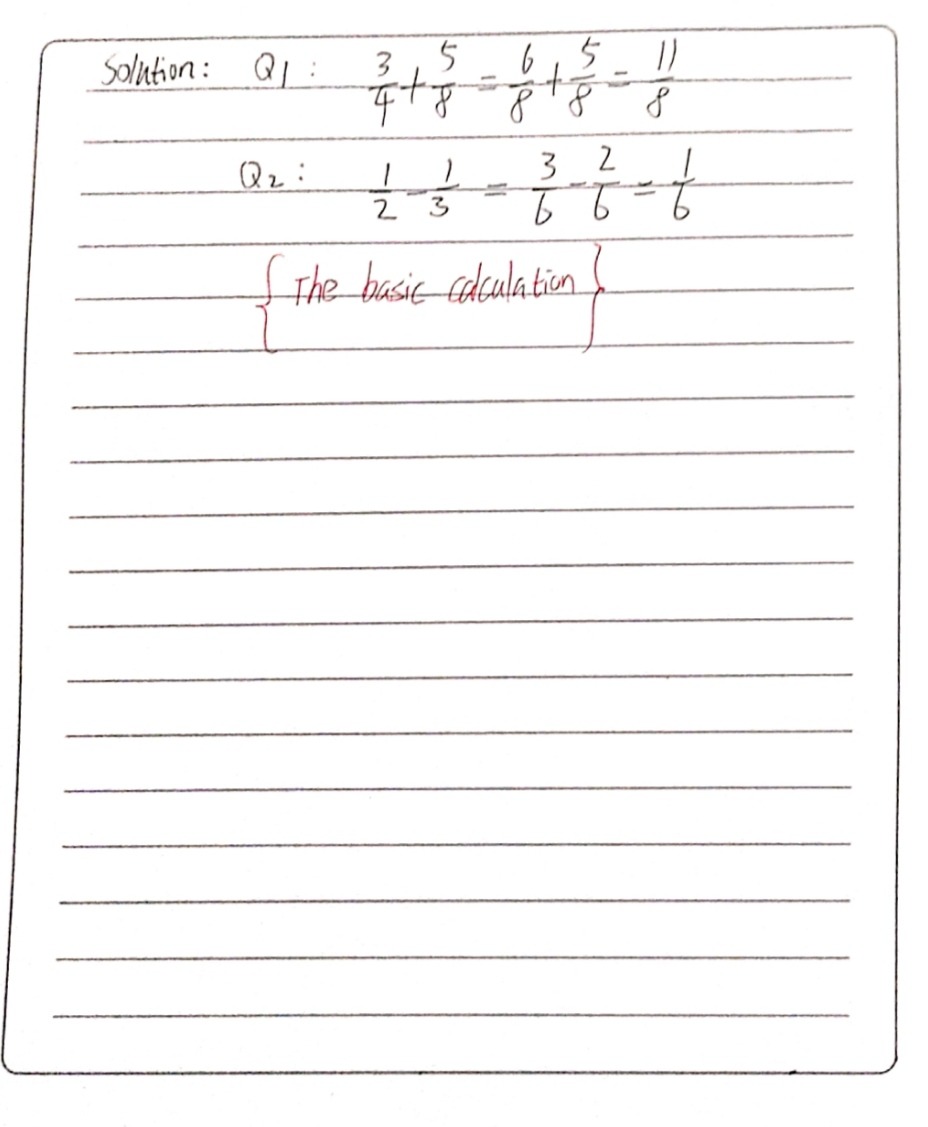 Solution: Q1: 3/4 + 5/8 = 6/8 + 5/8 = 11/8
Q2: 1/2 - 1/3 = 3/6 - 2/6 = 1/6
{The basic calculation}